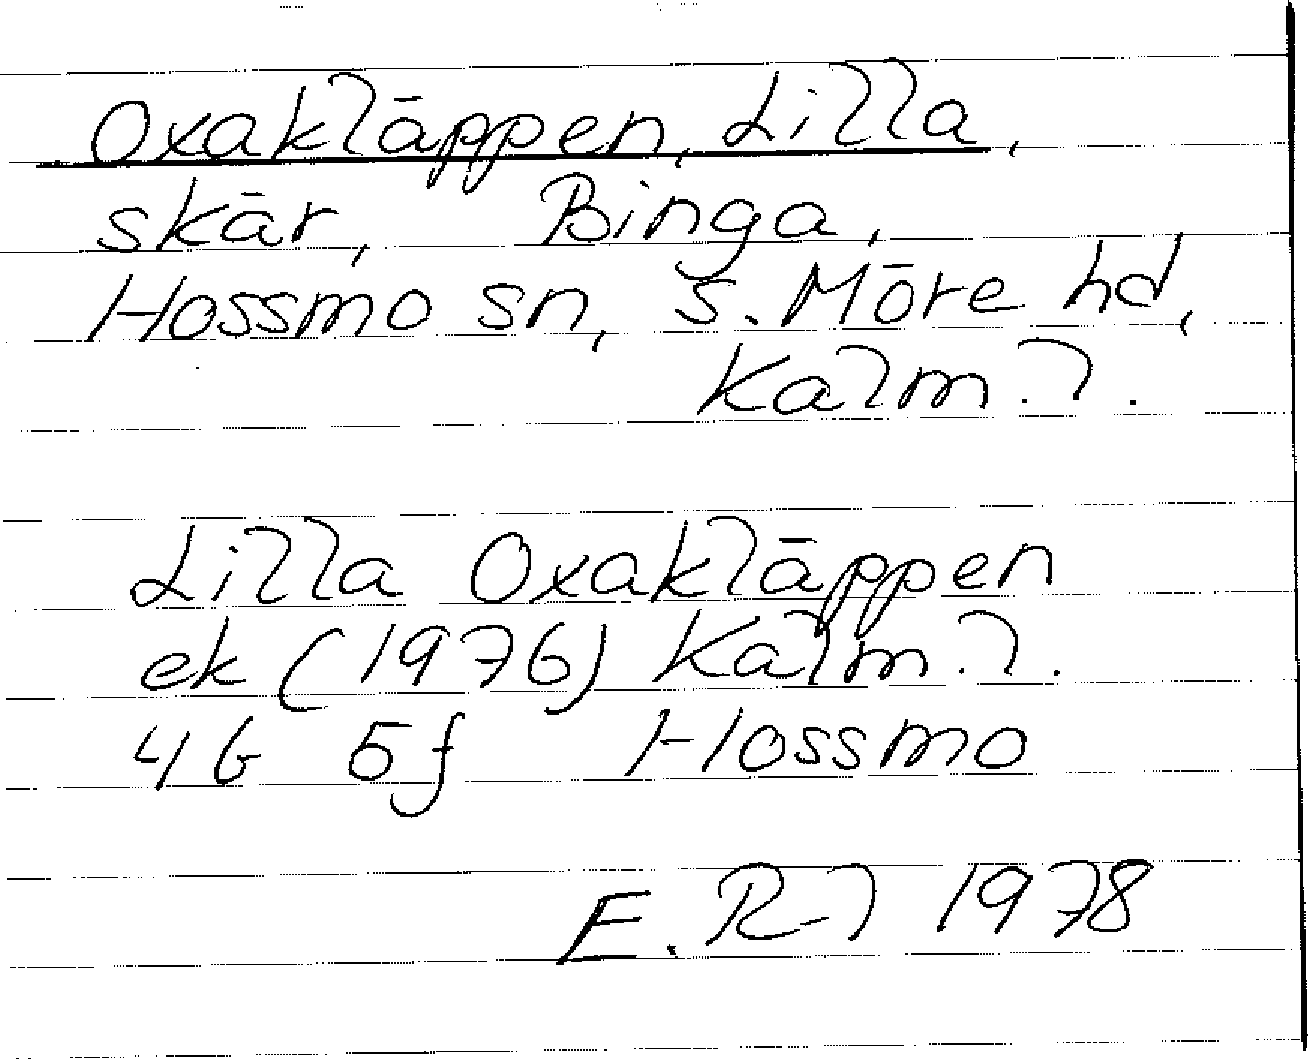 Oxakläppen, Lilla,
skär, Binga,
Hossmo sn, S. Möre hd,
Kalm. l.
Lilla Oxakläppen
ek (1976) Kalm. l.
4G 5f Hossmo
E. R-l 1978